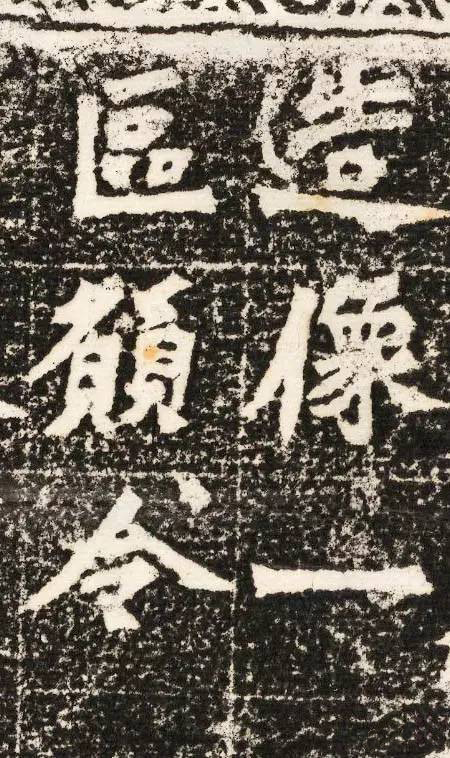 造像一
區願令